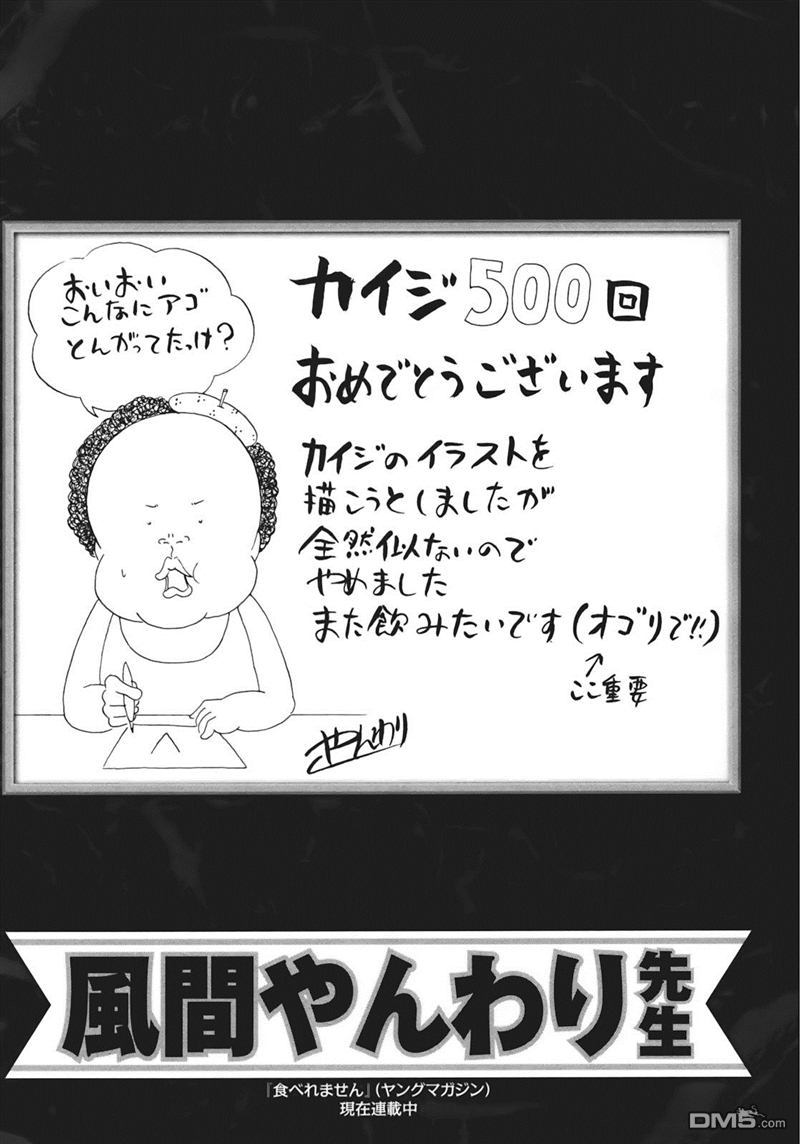 おいおい
こんなにアゴ
とんがってたっけ?
カイジ500回
おめでとうございます
カイジのイラストを
描こうとしましたが
全然似ないので
やめました
また飲みたいです(オゴリで!!)
↑
ここ重要
やんわり
風間やんわり先生
『食べれません』(ヤングマガジン)
現在連載中
DM5.com